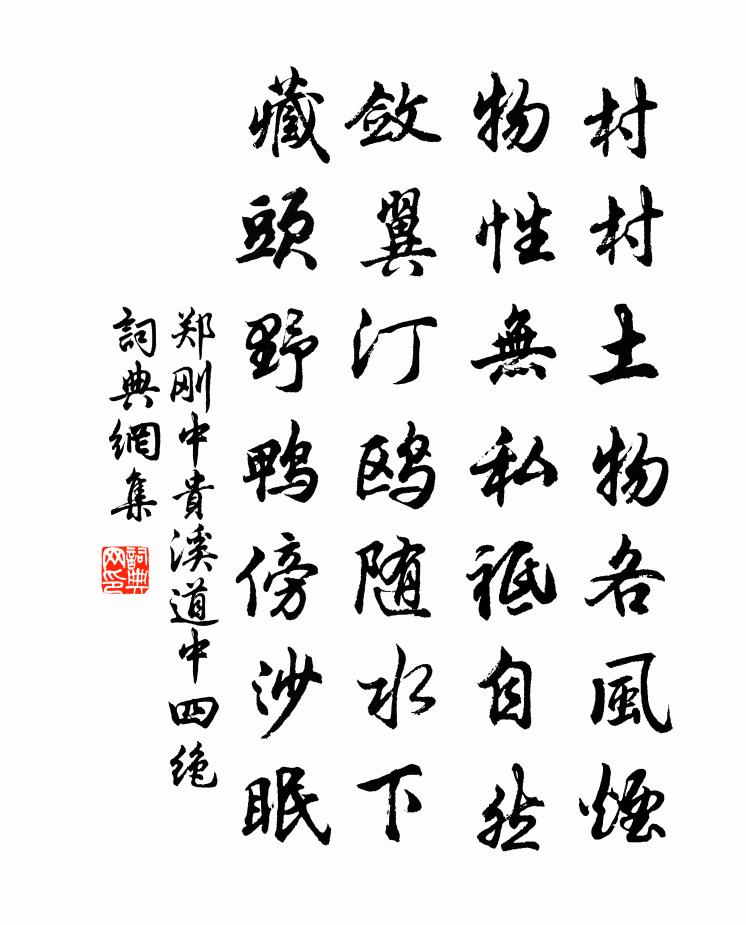 村村土物各風煙
物性無私祗自然
斂翼汀鸥随水下
藏頭野鴨傍沙眠
郑刚中貴溪道中四绝
詞典網集
詞典网印